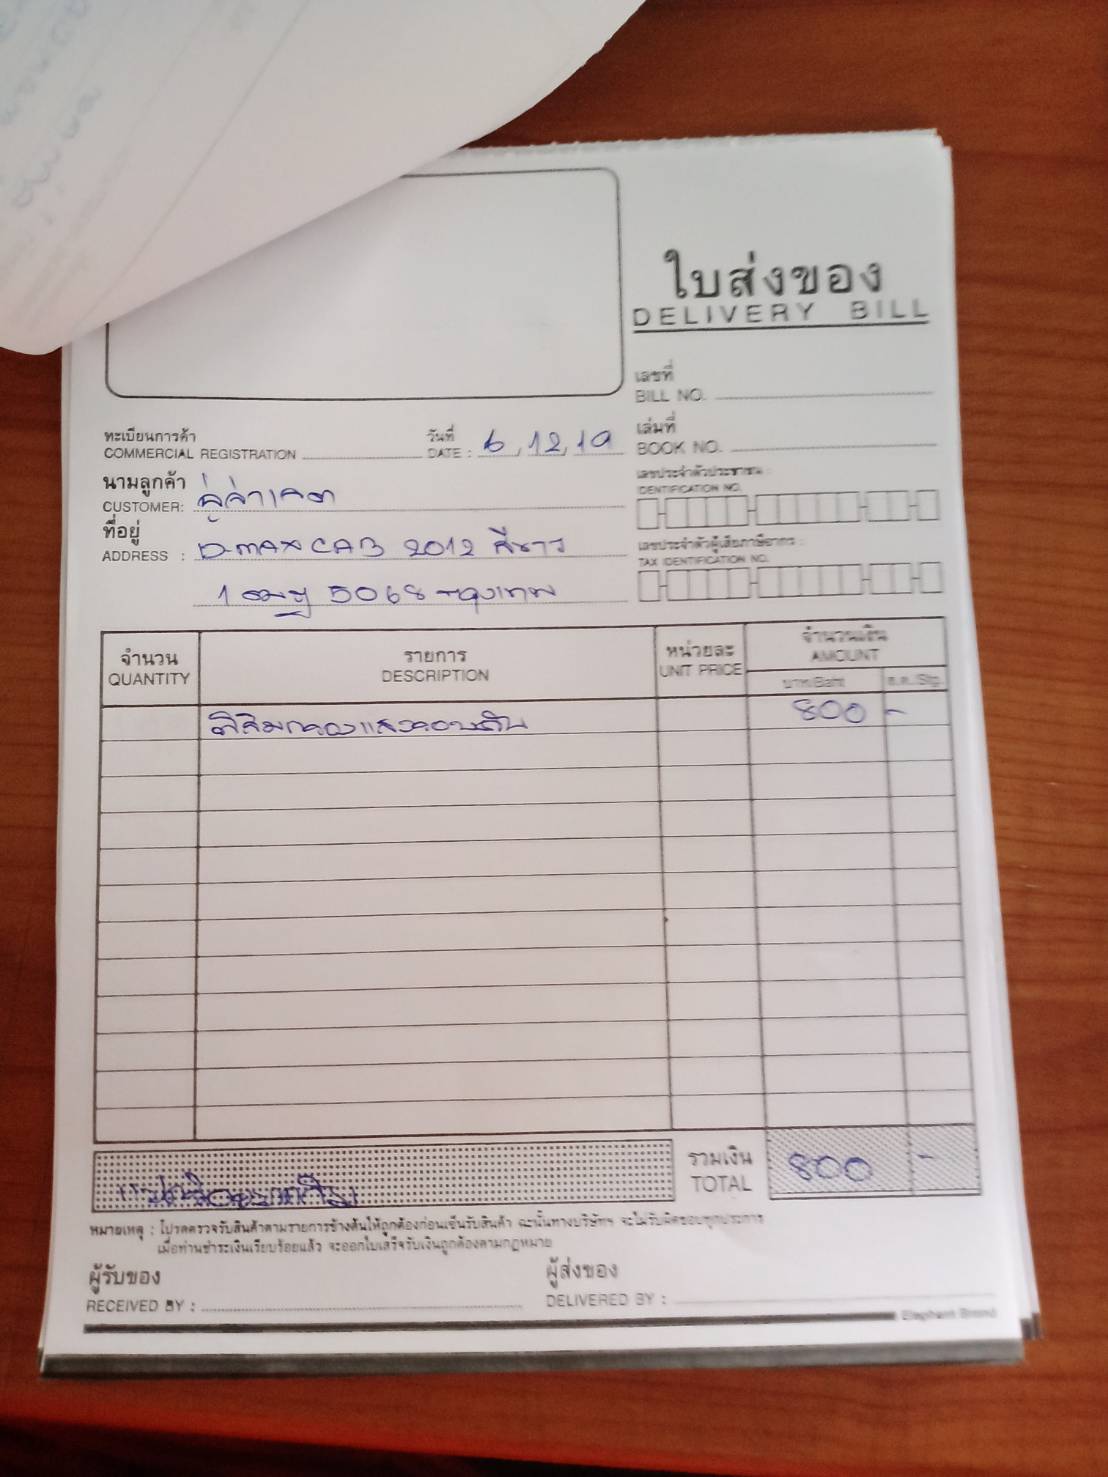 ใบส่งของ
DELIVERY BILL
เลขที่
BILL NO.
ทะเบียนการค้า
COMMERCIAL REGISTRATION
วันที่
DATE : 6, 12, 19
เล่มที่
BOOK NO.
นามลูกค้า
CUSTOMER:
เลขประจำตัวประชาชน :
IDENTIFICATION NO.
ที่อยู่
ADDRESS : D-MAX CAB 2012 สีขาว
เลขประจำตัวผู้เสียภาษีอากร :
TAX IDENTIFICATION NO.
1 5068 กรุงเทพ
จำนวน
QUANTITY
รายการ
DESCRIPTION
หน่วยละ
UNIT PRICE
จำนวนเงิน
AMOUNT
บาท/Baht
ส.ต./Stg.
800 -
รวมเงิน
TOTAL
800 -
หมายเหตุ : โปรดตรวจรับสินค้าตามรายการข้างต้นให้ถูกต้องก่อนเซ็นรับสินค้า ฉะนั้นทางบริษัทฯ จะไม่รับผิดชอบทุกประการ
เมื่อท่านชำระเงินเรียบร้อยแล้ว จะออกใบเสร็จรับเงินถูกต้องตามกฎหมาย
ผู้รับของ
RECEIVED BY :
ผู้ส่งของ
DELIVERED BY :
Elephant Brand